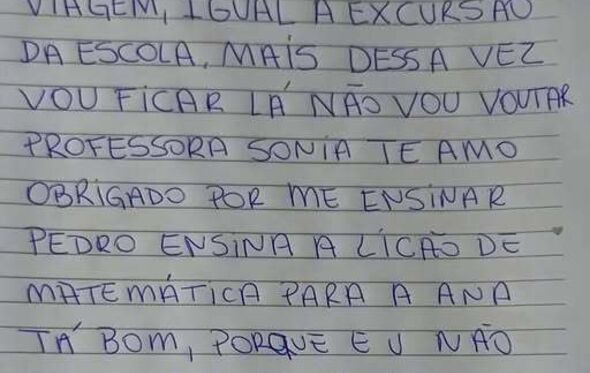 VIAGEM, IGUAL A EXCURSÃO
DA ESCOLA, MAÍS DESSA VEZ
VOU FICAR LÁ NÃO VOU VOUTAR
PROFESSORA SONIA TE AMO
OBRIGADO POR ME ENSINAR
PEDRO ENSINA A LICÃO DE
MATEMÁTICA PARA A ANA
TÁ BOM, PORQUE EU NÃO